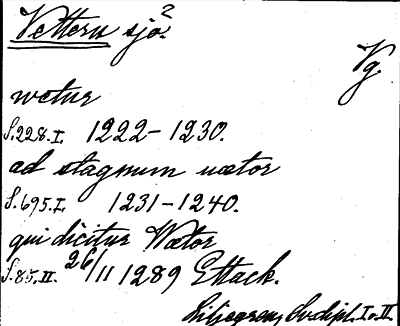 Vettern sjö?
Vg.
wetur
S. 228. I. 1222-1230.
ad stagnum uætor
S. 695. I. 1231-1240.
qui dicitur Wætor
S. 85. II. 26/11 1289 Ettack.
Liljegren, Sv. dipl. I o. II.